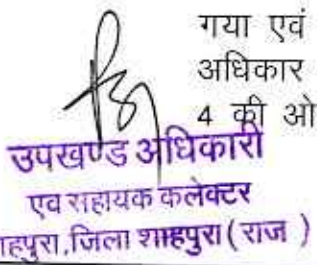 गया एवं
अधिकार
4 की ओ
उपखण्ड अधिकारी
एव सहायक कलेक्टर
ाहपुरा,जिला शाहपुरा (राज )